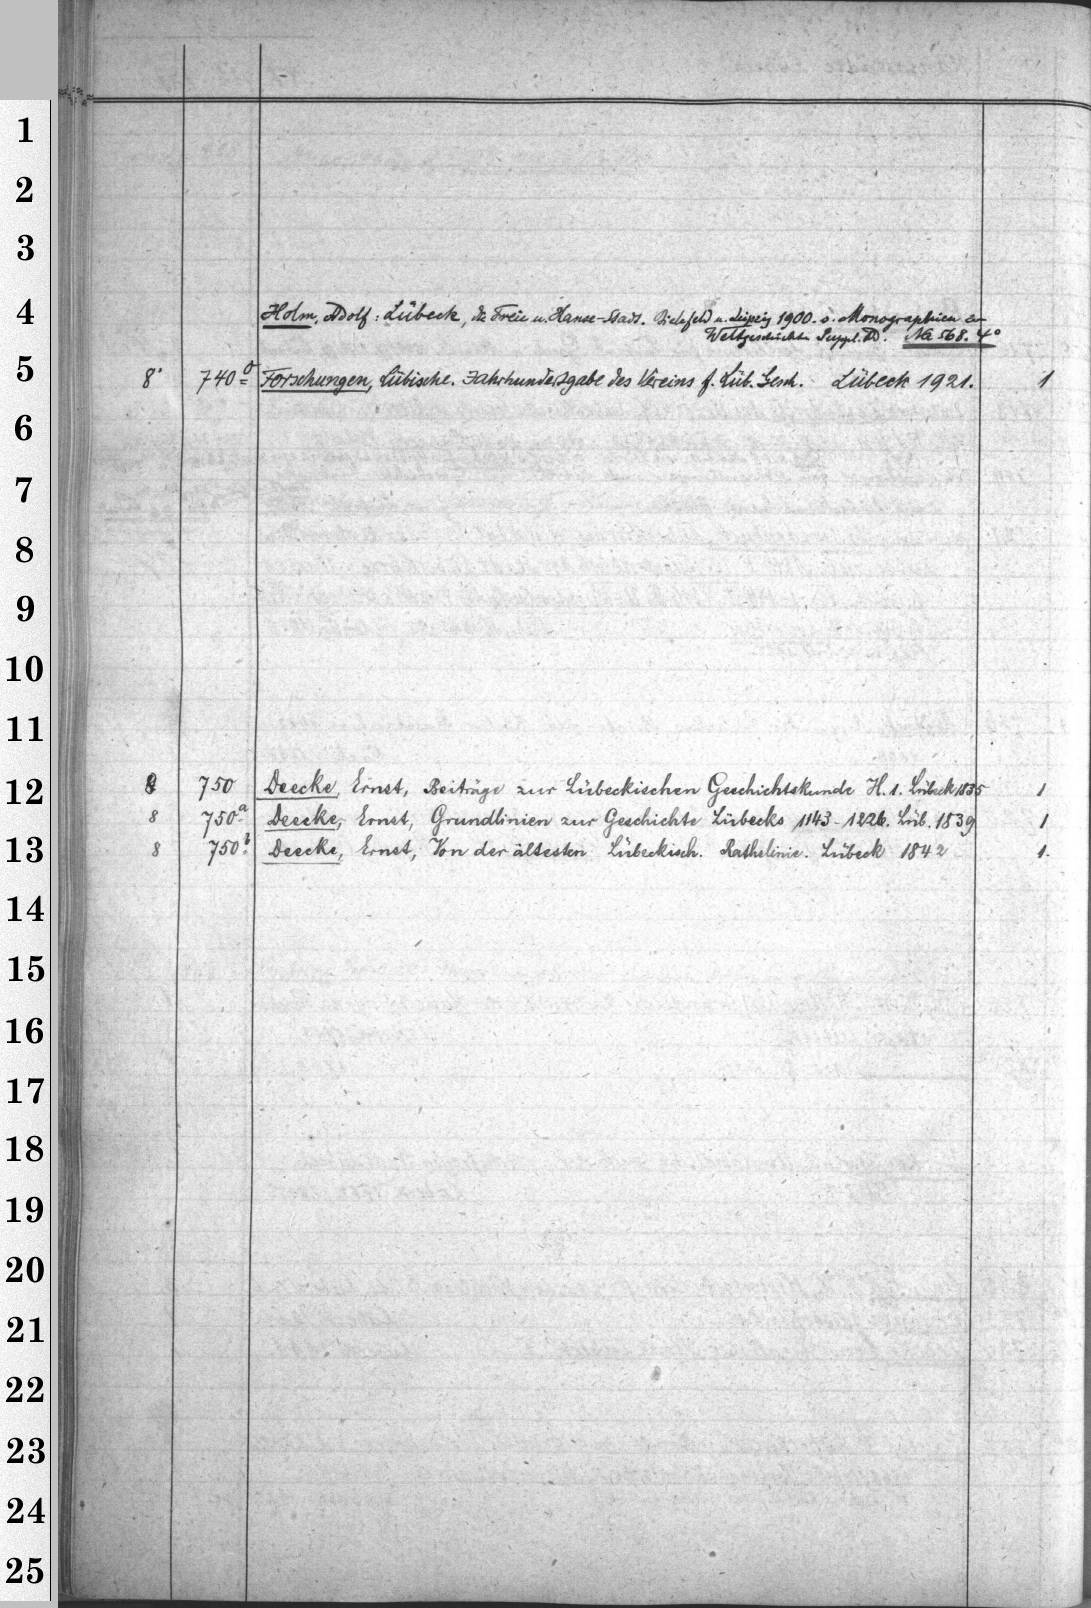 1
2
3
4 Holm, Adolf: Lübeck, die Freie u. Hanse-Stadt. Bielefeld u. Leipzig 1900. s. Monographien zur
Weltgeschichte Suppl. Bd. Na 568. 4°
5 8° 740 Forschungen, Lübische. Jahrhundertgabe des Vereins f. Lüb. Gesch. Lübeck 1921. 1
6
7
8
9
10
11
12 8 750 Deecke, Ernst, Beiträge zur Lübeckischen Geschichtskunde H. 1. Lübeck 1835 1
8 750a Deecke, Ernst, Grundlinien zur Geschichte Lübecks 1143-1226. Lüb. 1839 1
13 8 750b Deecke, Ernst, Von der ältesten Lübeckisch. Rathslinie. Lübeck 1842 1.
14
15
16
17
18
19
20
21
22
23
24
25